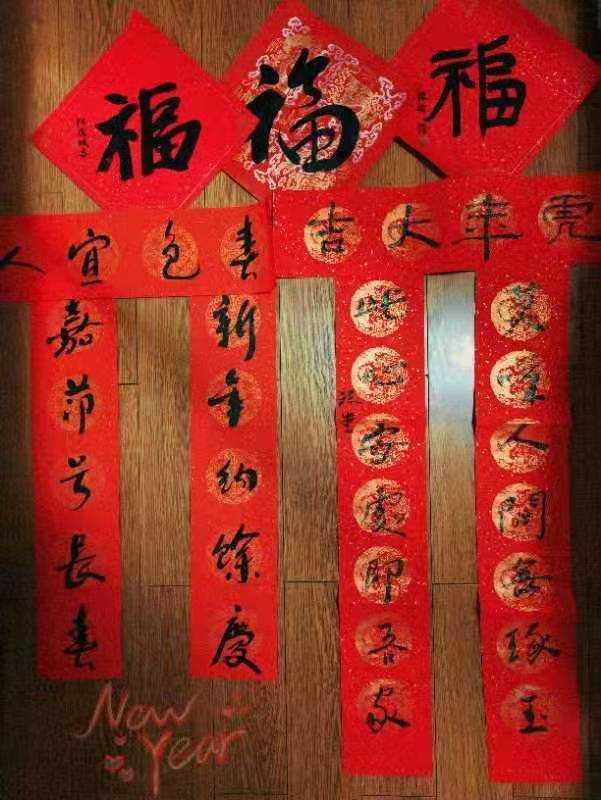 福
福
福
虎年大吉
莫嘆人間無琢玉
此心安處即吾家
春色宜人
新年纳餘慶
嘉节号長春
New
Year